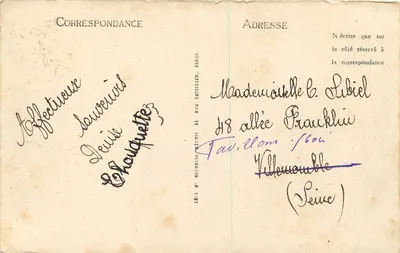 CORRESPONDANCE
Affectueux
Souvenirs
Denise
Chouquette
ADRESSE
N'écrire que sur
le côté réservé à
la correspondance
Mademoiselle C. Libiel
48 allée Franklin
Pavillons s/Bois
Villemomble
(Seine)